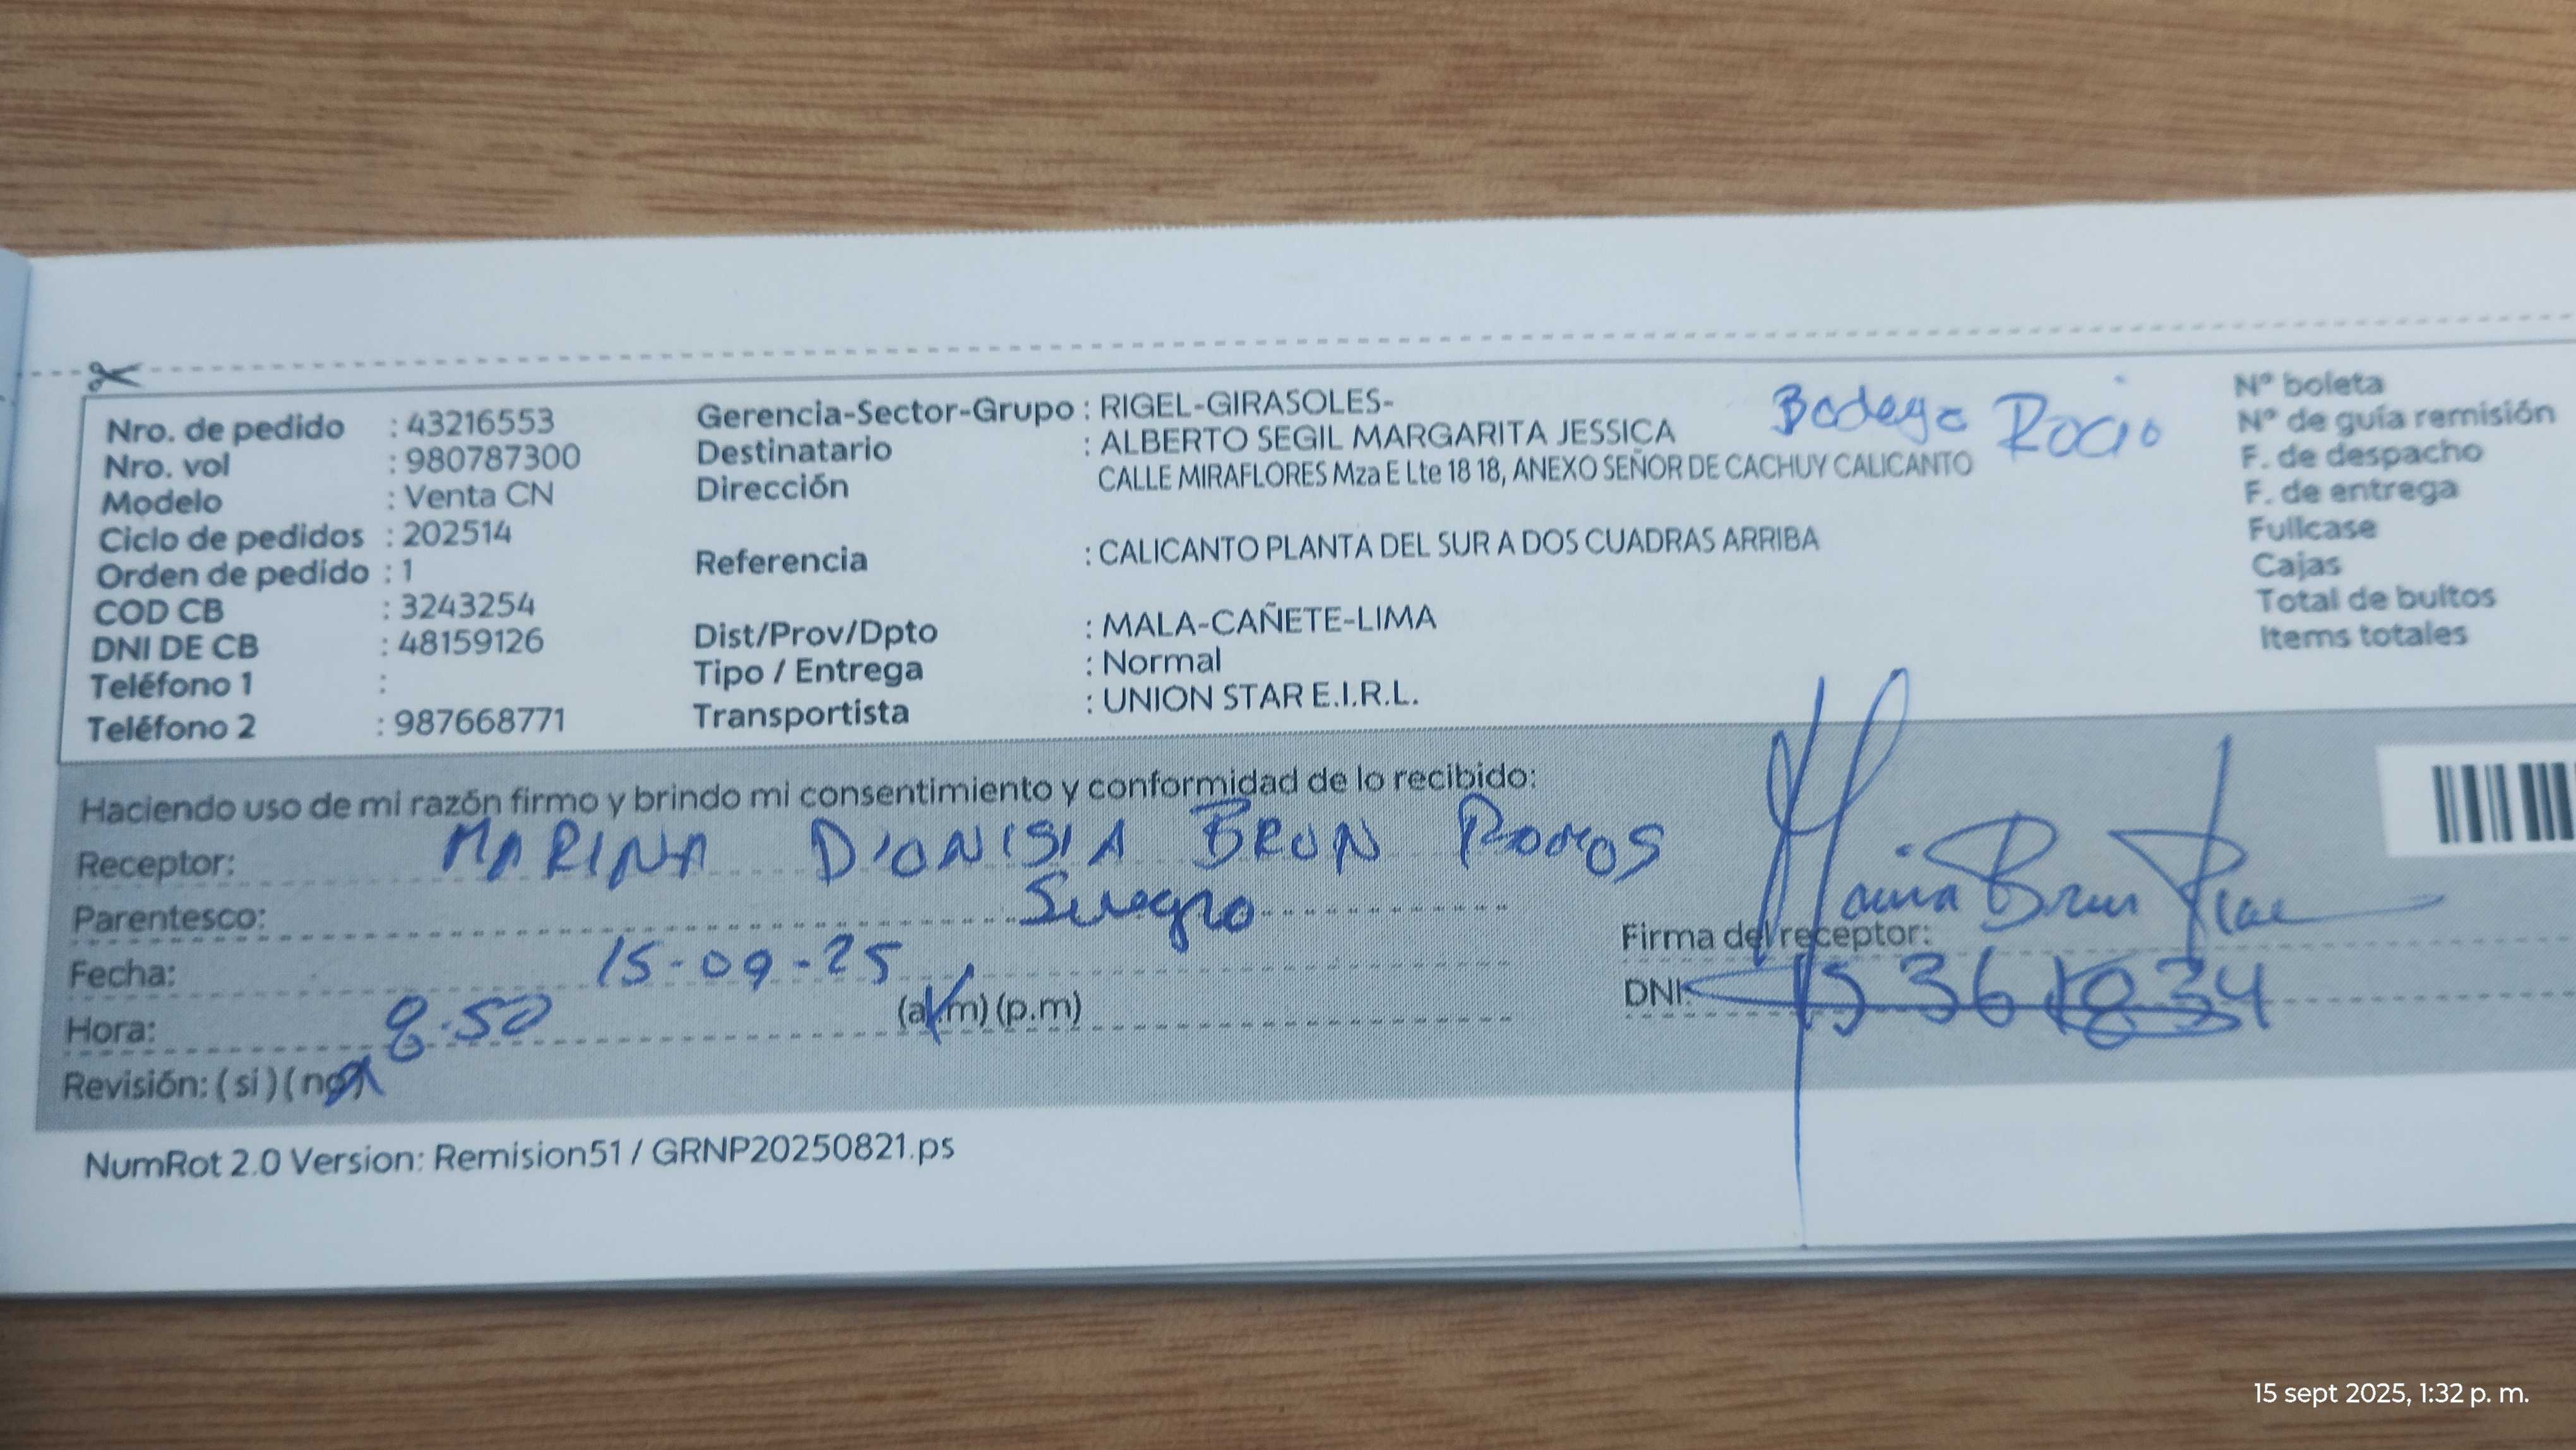 Nro. de pedido : 43216553
Nro. vol : 980787300
Modelo : Venta CN
Ciclo de pedidos : 202514
Orden de pedido : 1
COD CB : 3243254
DNI DE CB : 48159126
Teléfono 1 :
Teléfono 2 : 987668771
Gerencia-Sector-Grupo : RIGEL-GIRASOLES-
Destinatario : ALBERTO SEGIL MARGARITA JESSICA
Dirección CALLE MIRAFLORES Mza E Lte 18 18, ANEXO SEÑOR DE CACHUY CALICANTO
Referencia : CALICANTO PLANTA DEL SUR A DOS CUADRAS ARRIBA
Dist/Prov/Dpto : MALA-CAÑETE-LIMA
Tipo / Entrega : Normal
Transportista : UNION STAR E.I.R.L.
Bodega Rocio
Nº boleta
Nº de guía remisión
F. de despacho
F. de entrega
Fullcase
Cajas
Total de bultos
Items totales
Haciendo uso de mi razón firmo y brindo mi consentimiento y conformidad de lo recibido:
Receptor: MARINA DIONISIA BRUN
Parentesco: Suegra
Fecha: 15-09-25
Hora: 8.50 (a.m) (p.m)
Revisión: (si) (no)
Firma del receptor: Brun
DNI:
NumRot 2.0 Version: Remision51 / GRNP20250821.ps
15 sept 2025, 1:32 p. m.